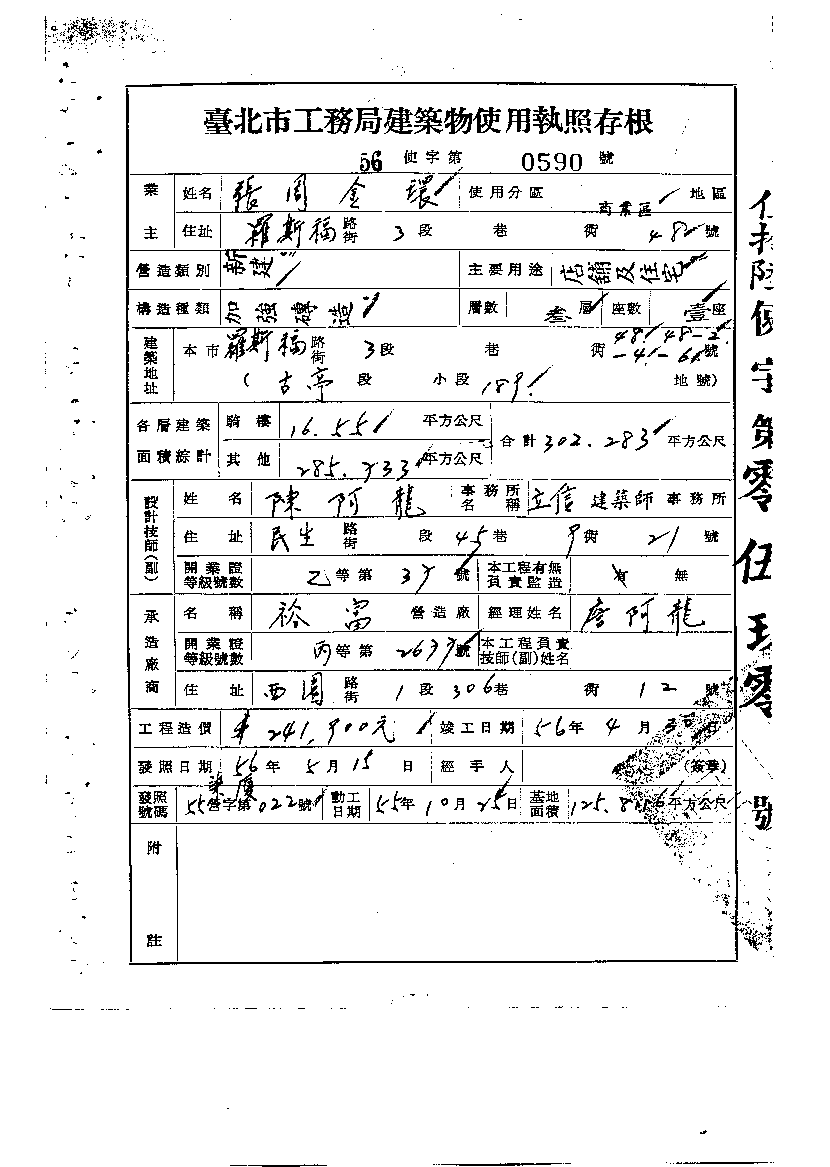 臺北市工務局建築物使用執照存根
56 使字第 0590 號
業主 姓名 張周金環 使用分區 商業區 地區
住址 羅斯福 路街 3段 巷 街 48 號
營造類別 新建 主要用途 店舖及住宅
構造種類 加強磚造 層數 叁層 座數 壹座
建築地址 本市 羅斯福 路街 3段 巷 街 48 48-2 號
(古亭段 小段 189 地號)
各層建築面積綜計 騎樓 16.55 平方公尺 合計 302.283 平方公尺
其他 285.733 平方公尺
設計技師(副) 姓名 陳阿龍 事務所名稱 立信建築師事務所
住址 民生 路街 段 45巷 街 21 號
開業證等級號數 乙等第 37 號 本工程有無負責監造 有 無
承造廠商 名稱 裕富 營造廠 經理姓名 詹阿龍
開業證等級號數 丙等第 2677 號 本工程負責技師(副)姓名
住址 西園 路街 1段 306巷 街 12 號
工程造價 241,900元 竣工日期 56年 4月 30日
發照日期 56年 5月 15日 經手人 (簽章)
發照號碼 55營字第022號 動工日期 55年10月25日 基地面積 平方公尺
附註
字第零伍玖零 號